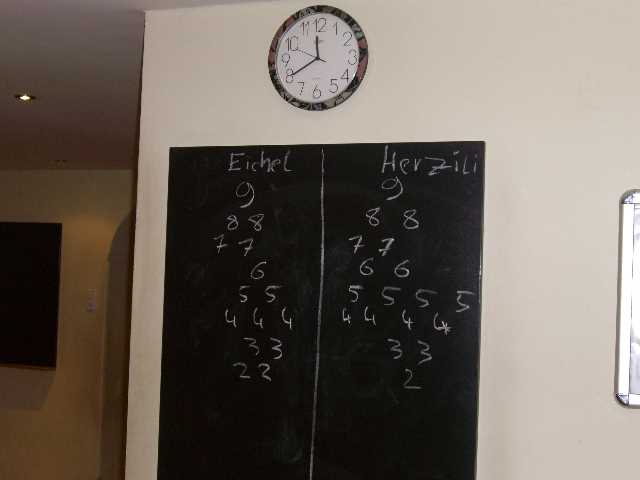 12
1
2
3
4
5
6
7
8
9
10
11
Eichel
9
8 8
7 7
6
5 5
4 4 4
3 3
2 2
Herzili
9
8 8
7 7
6 6
5 5 5 5
4 4 4 4*
3 3
2